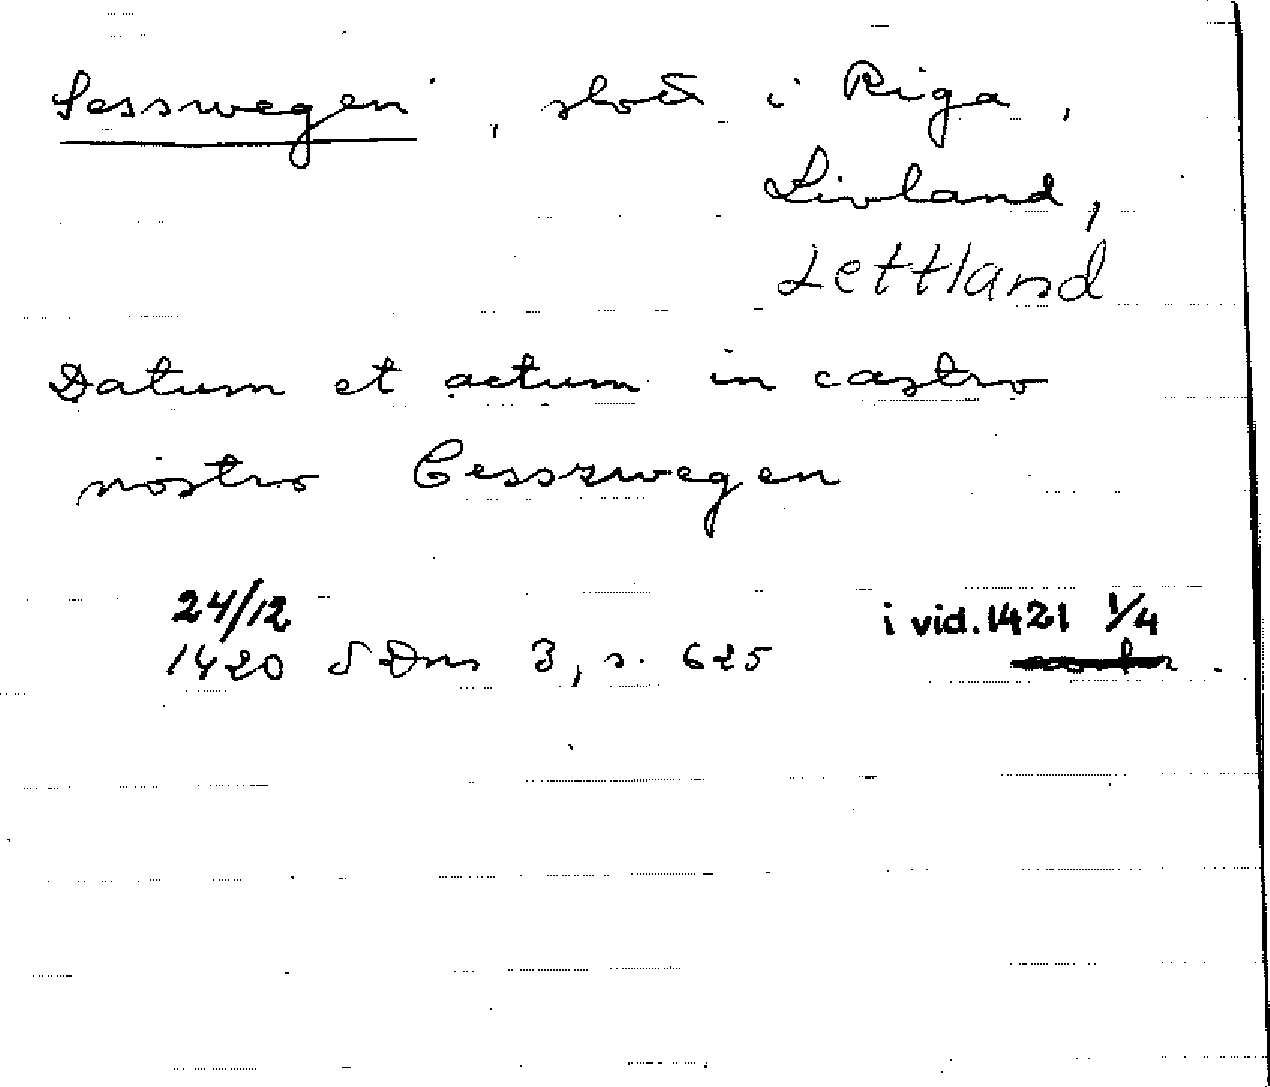 Sesswegen, slott i Riga,
Livland,
Lettland
Datum et actum in castro
nostro Cesszwegen
24/12 i vid. 1421 1/4
1420 SDns 3, s. 625